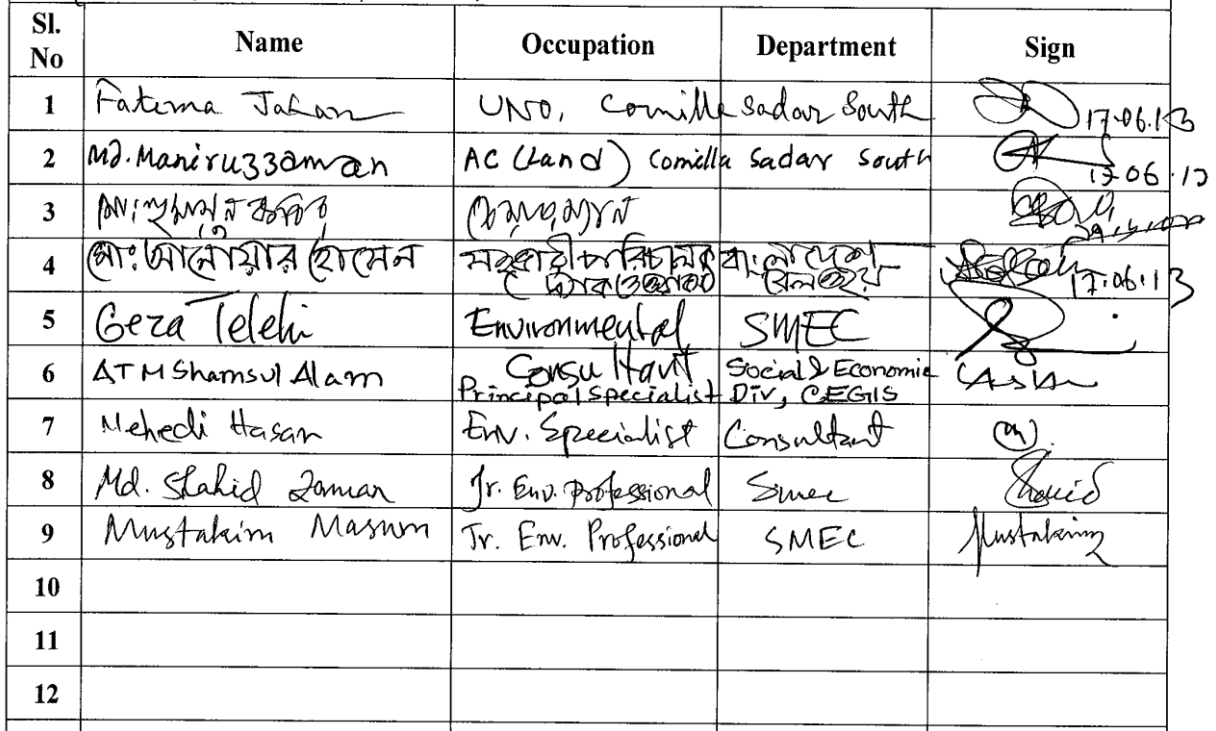 Sl. No Name Occupation Department Sign
1 Fatima Jahan UNO, Comilla Sadar South 17.06.13
2 Md. Maniruzzaman AC (Land) Comilla Sadar South 17.06.13
3
4 মোঃ আনোয়ার হোসেন সহকারী বাংলাদেশ 17.06.13
রেলওয়ে
5 Geza Teleki Environmental SMEC
6 ATM Shamsul Alam Consultant Social & Economic
Principal Specialist Div, CEGIS
7 Mehedi Hasan Env. Specialist Consultant (m).
8 Md. Shahid Zaman Jr. Env. Professional Smec Shahid
9 Mustakim Masum Jr. Env. Professional SMEC Mustakim
10
11
12